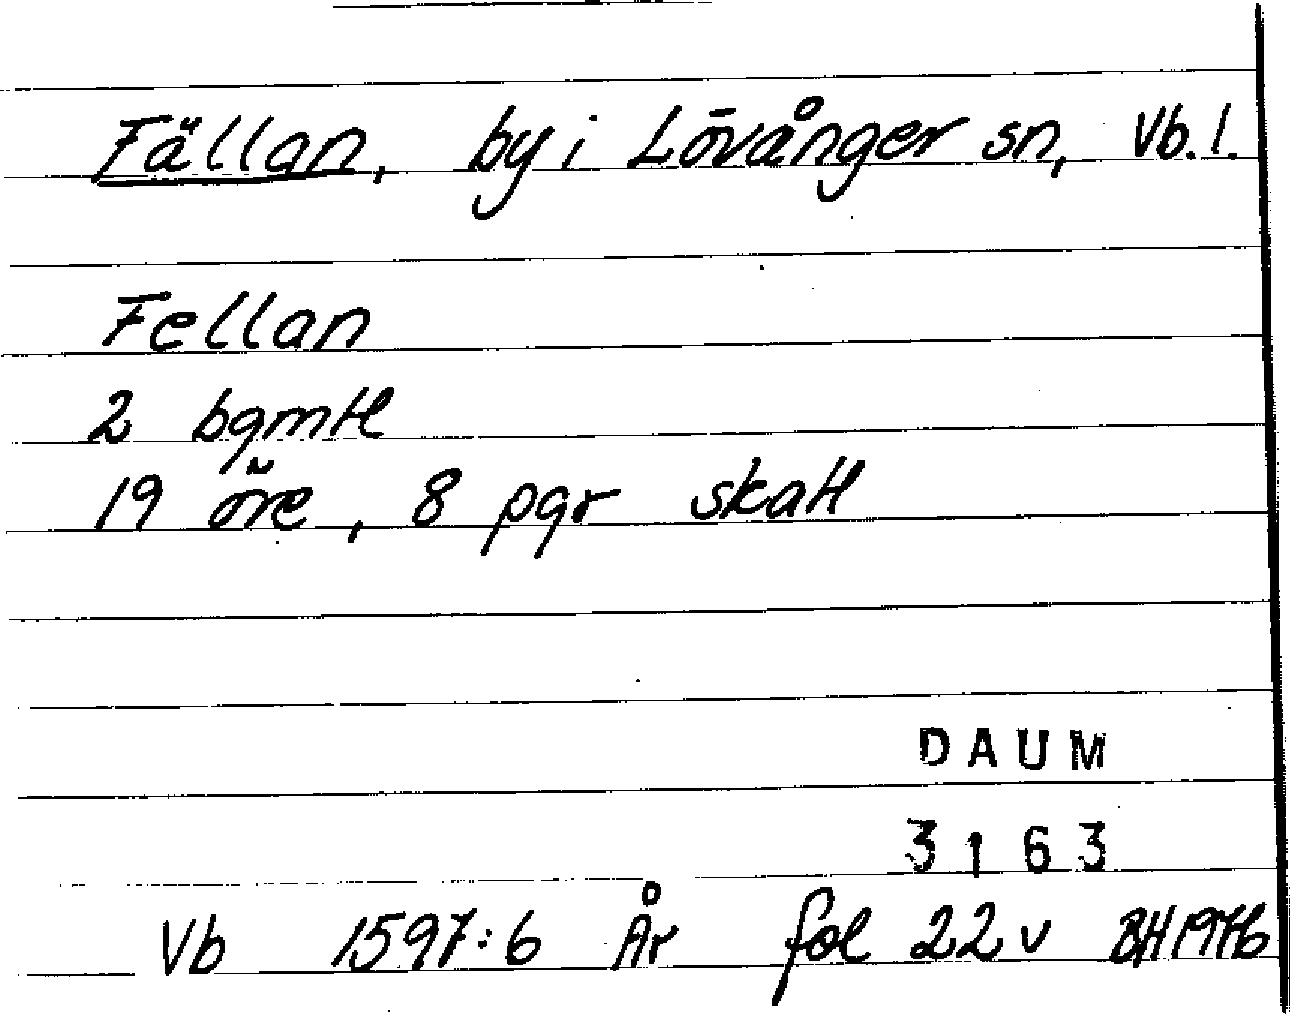 Fällan, by i Lövånger sn, Vb. l.
Fellan
2 bgmtl
19 öre, 8 pgr skatt
DAUM
3163
Vb 1597:6 År fol 22 v BH 1976